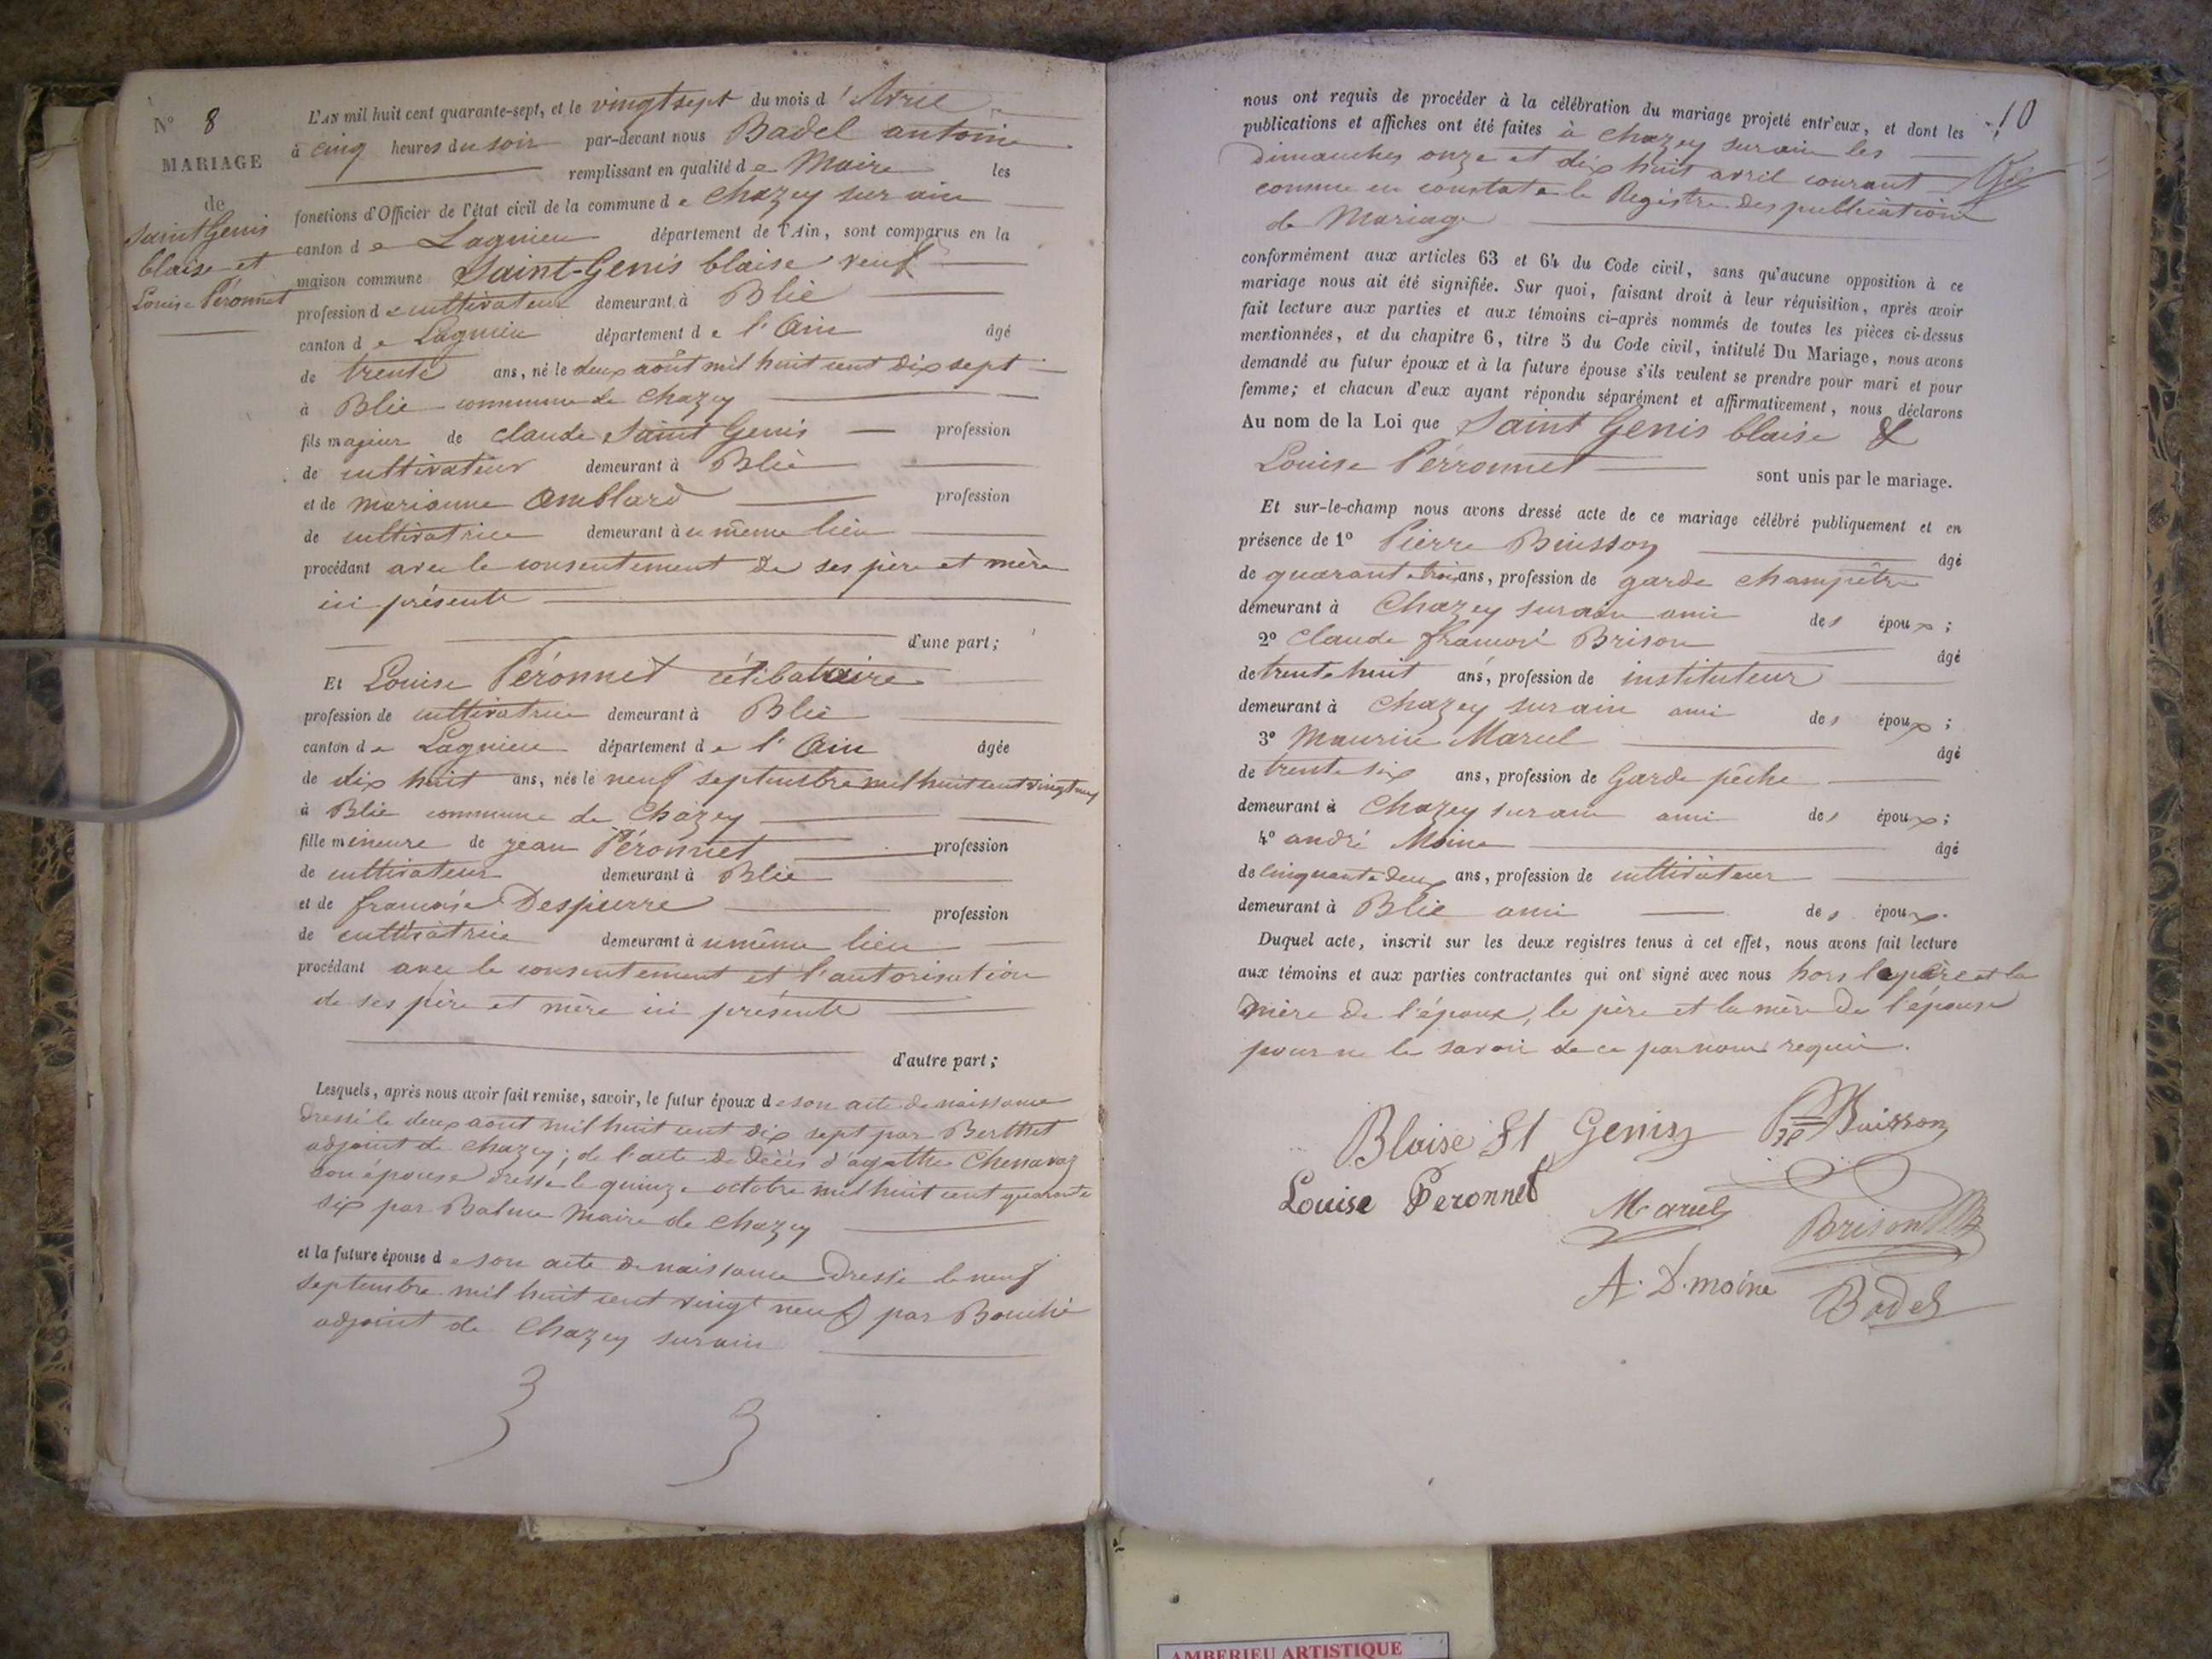 N° 8
MARIAGE
de
Saint Genis
blaise et
Louise Péronnet
L'AN mil huit cent quarante-sept, et le vingt sept du mois d'Avril
à cinq heures du soir par-devant nous Badel antoine
remplissant en qualité de Maire les
fonctions d'Officier de l'état civil de la commune de chazey sur ain
canton de Lagnieu département de l'Ain, sont comparus en la
maison commune Saint-Genis blaise veuf
profession de cultivateur demeurant à Blie
canton de Lagnieu département de l'Ain âgé
de trente ans, né le deux août mil huit cent dix sept
à Blie commune de chazey
fils majeur de claude Saint Genis profession
de cultivateur demeurant à Blie
et de marianne Amblard profession
de cultivatrice demeurant à u même lieu
procédant avec le consentement de ses père et mère
ici présents
d'une part;
Et Louise Péronnet célibataire
profession de cultivatrice demeurant à Blie
canton de Lagnieu département de l'Ain âgée
de dix huit ans, née le neuf septembre mil huit cent vingt neuf
à Blie commune de Chazey
fille mineure de jean Péronnet profession
de cultivateur demeurant à Blie
et de françoise Despierre profession
de cultivatrice demeurant à u même lieu
procédant avec le consentement et l'autorisation
de ses père et mère ici présents
d'autre part;
Lesquels, après nous avoir fait remise, savoir, le futur époux de son acte de naissance
dressé le deux aout mil huit cent dix sept par Berthet
adjoint de chazey; de l'acte de décès d'agathe Chenavaz
son épouse dressé le quinze octobre mil huit cent quarante
six par Balme Maire de chazey
et la future épouse de son acte de naissance dressé le neuf
septembre mil huit cent vingt neuf par Bouché
adjoint de Chazey sur ain
10
nous ont requis de procéder à la célébration du mariage projeté entr'eux, et dont les
publications et affiches ont été faites à chazey sur ain les
dimanches onze et dix huit avril courant
comme en constate le Registre des publications
de Mariage
conformément aux articles 63 et 64 du Code civil, sans qu'aucune opposition à ce
mariage nous ait été signifiée. Sur quoi, faisant droit à leur réquisition, après avoir
fait lecture aux parties et aux témoins ci-après nommés de toutes les pièces ci-dessus
mentionnées, et du chapitre 6, titre 5 du Code civil, intitulé Du Mariage, nous avons
demandé au futur époux et à la future épouse s'ils veulent se prendre pour mari et pour
femme; et chacun d'eux ayant répondu séparément et affirmativement, nous déclarons
Au nom de la Loi que Saint Genis blaise &
Louise Perronnet sont unis par le mariage.
Et sur-le-champ nous avons dressé acte de ce mariage célébré publiquement et en
présence de 1° Pierre Buisson âgé
de quarante trois ans, profession de garde champêtre
demeurant à Chazey sur ain ami des époux;
2° Claude françois Brison âgé
de trente huit ans, profession de instituteur
demeurant à Chazey sur ain ami des époux;
3° Maurice Marcel âgé
de trente six ans, profession de Garde pêche
demeurant à Chazey sur ain ami des époux;
4° andré Moine âgé
de cinquante deux ans, profession de cultivateur
demeurant à Blie ami des époux.
Duquel acte, inscrit sur les deux registres tenus à cet effet, nous avons fait lecture
aux témoins et aux parties contractantes qui ont signé avec nous hors le père et la
mère de l'époux, le père et la mère de l'épouse
pour ne le savoir de ce par nous requis.
Blaise St Genis Buisson
Louise Peronnet Marcel Brison
A. D. moine Badel
AMBERIEU ARTISTIQUE